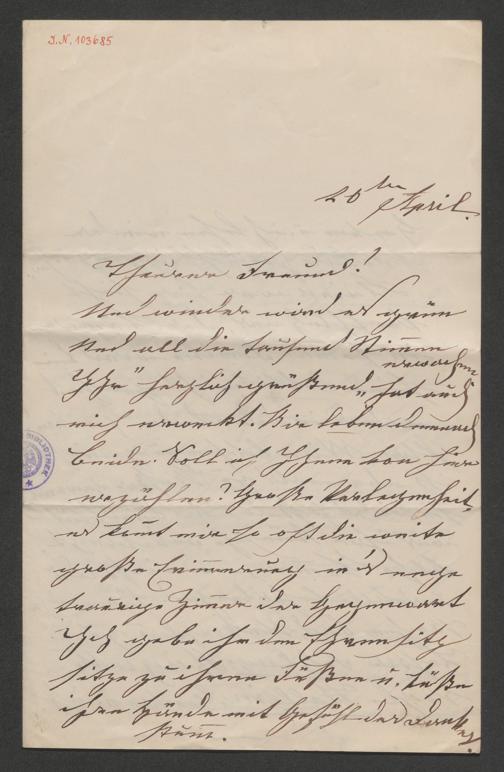 J.N. 103685
20ten April.
Theurer Freund!
Und wieder wird es grün
Und all die tausend Stimmen
erwachen
Ihr "herzlich grüßend" hat auch
mich erweckt. Wir leben dennoch
beide. Soll ich Ihnen von hier
erzählen? Große Verlegenheit,
es kommt mir so oft die weite
große Erinnerung in's enge
traurige Zimmer der Gegenwart
Ich gebe ihr den Ehrensitz
sitze zu ihren Füßen u. küße
ihre Hände mit Gefühl des Dankes.
stum.
BIBLIOTHEK